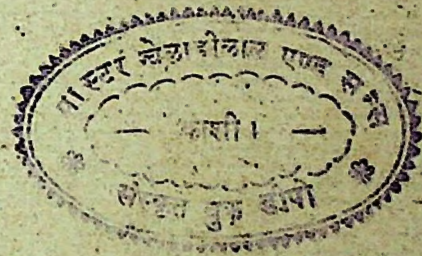 मास्टर खेलाडीलाल एण्ड सन्स
काशी ।
संस्कृत बुक डीपो